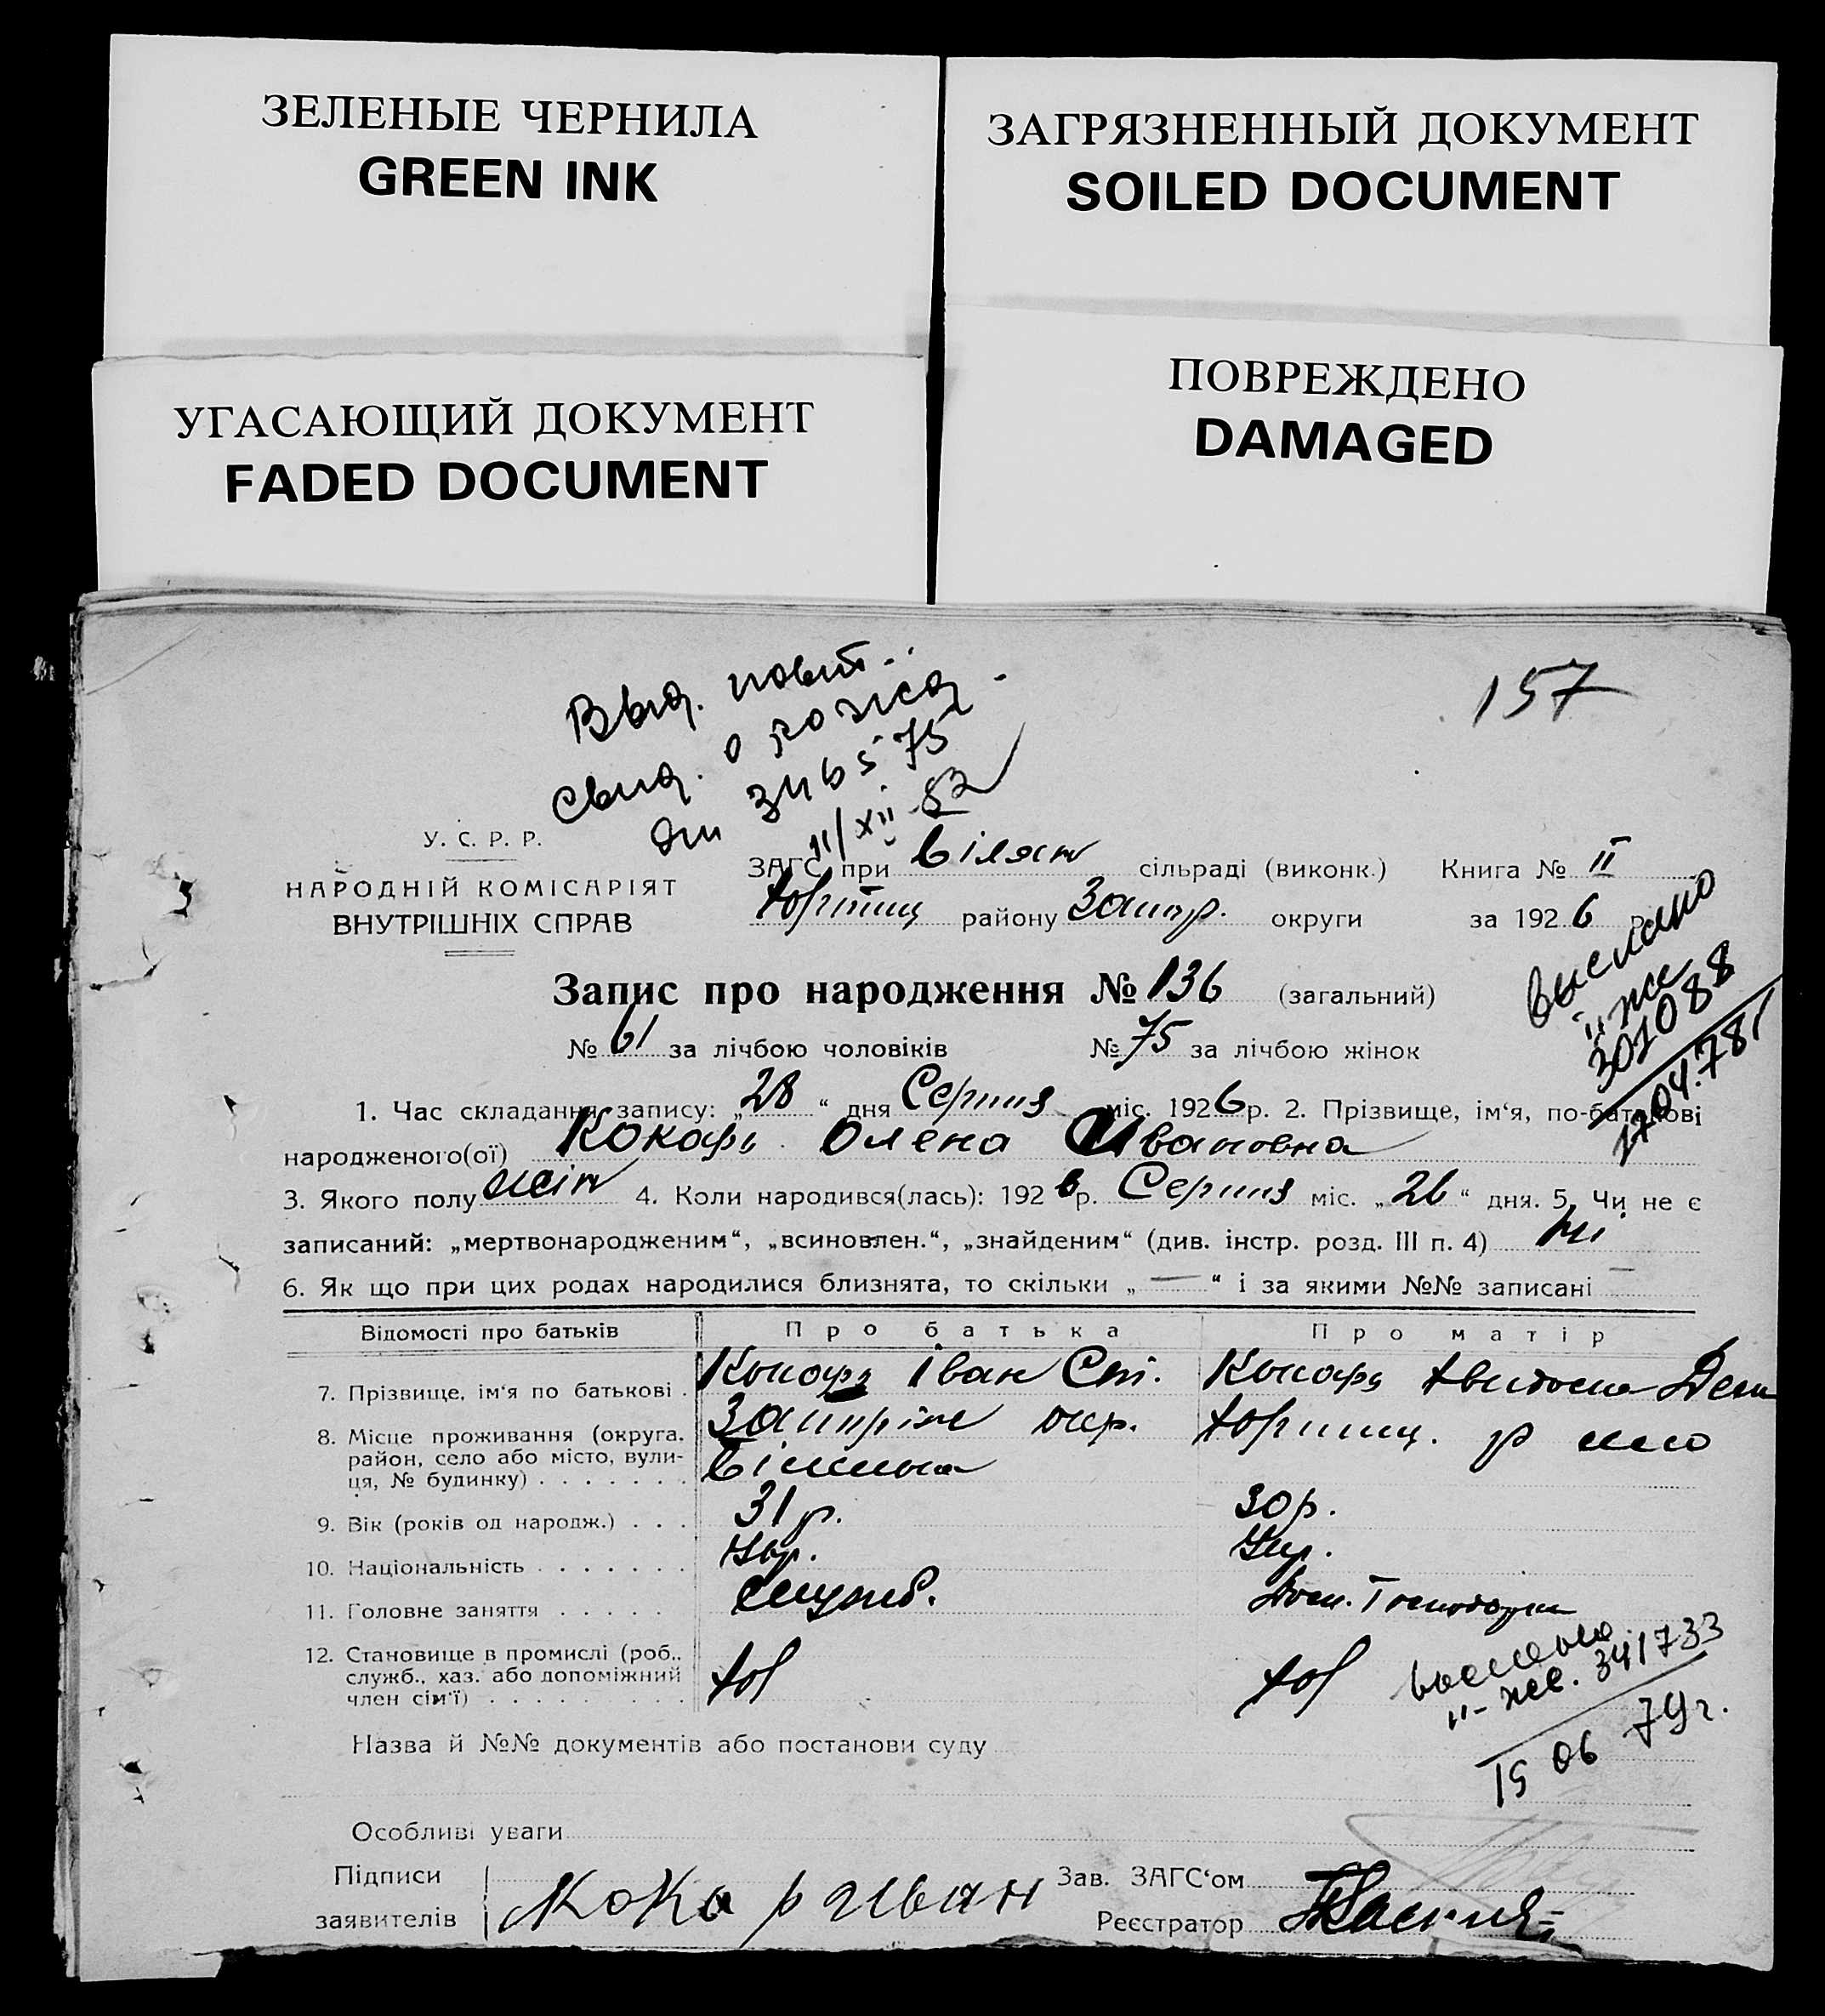 ЗЕЛЕНЫЕ ЧЕРНИЛА
GREEN INK
ЗАГРЯЗНЕННЫЙ ДОКУМЕНТ
SOILED DOCUMENT
УГАСАЮЩИЙ ДОКУМЕНТ
FADED DOCUMENT
ПОВРЕЖДЕНО
DAMAGED
157
Выд. повт.
свид. о рожд.
346575
11/XII-82
У. С. Р. Р.
НАРОДНІЙ КОМІСАРІЯТ
ВНУТРІШНІХ СПРАВ
ЗАГС при сільраді (виконк.) Книга № II
району округи за 1926 р.
выслано
307088
Запис про народження № 136 (загальний)
№ 61 за лічбою чоловіків № 75 за лічбою жінок
1. Час складання запису: „28“ дня Серпня міс. 1926 р. 2. Прізвище, ім‘я, по-батькові
народженого(ої) Кокарь Олена Ивановна
3. Якого полу жін 4. Коли народився(лась): 1926 р. Серпня міс. „26“ дня. 5. Чи не є
записаний: „мертвонародженим“, „всиновлен.“, „знайденим“ (див. інстр. розд. III п. 4) ні
6. Як що при цих родах народилися близнята, то скільки „—“ і за якими №№ записані —
Відомості про батьків Про батька Про матір
7. Прізвище, ім‘я по батькові . Кокарь Іван Ст. Кокарь
8. Місце проживання (округа, район, село або місто, вулиця, № будинку) окр. р
9. Вік (років од народж.) . . . 31 р. 30 р.
10. Національність Укр. Укр.
11. Головне заняття служб. Дом. Господарка
12. Становище в промислі (роб., служб., хаз. або допоміжний член сім‘ї)
341733
15 06 79г.
Назва й №№ документів або постанови суду
Особливі уваги
Підписи заявителів Кокарь Иван
Зав. ЗАГС‘ом
Реєстратор